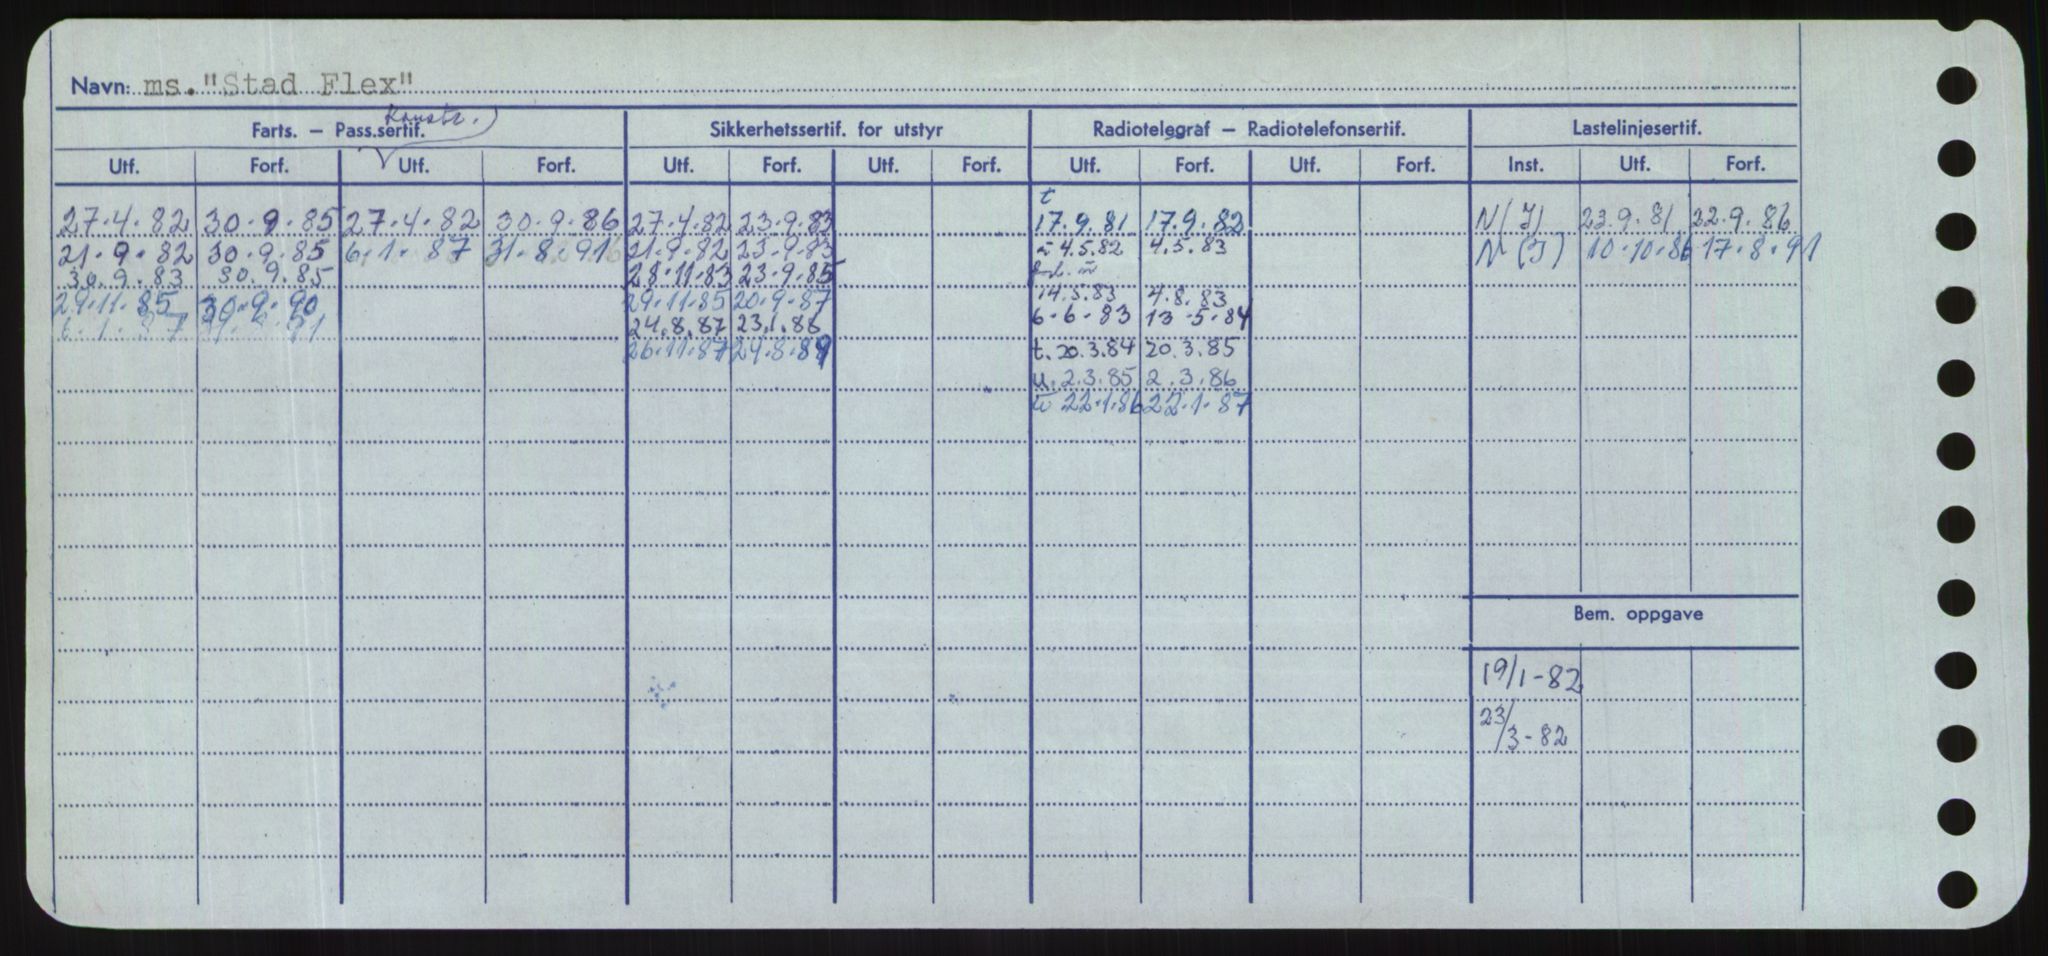 Navn: ms. "Stad Flex"
Konstr.
Farts. – Pass.sertif. Sikkerhetssertif. for utstyr Radiotelegraf – Radiotelefonsertif. Lastelinjesertif.
Utf. Forf. Utf. Forf. Utf. Forf. Utf. Forf. Utf. Forf. Utf. Forf. Inst. Utf. Forf.
t
27.4.82 30.9.85 27.4.82 30.9.86 27.4.82 23.9.83 17.9.81 17.9.82 N(I) 23.9.81 22.9.86
21.9.82 30.9.85 6.1.87 31.8.91 21.9.82 23.9.83 4.5.82 4.5.83 N(I) 10.10.86 17.8.91
30.9.83 30.9.85 28.11.83 23.9.85
29.11.85 30.9.90 29.11.85 20.9.87 14.5.83 4.8.83
6.1.87 24.8.87 23.1.88 6.6.83 13.5.84
26.11.87 24.8.89 t. 20.3.84 20.3.85
u. 2.3.85 2.3.86
22.1.86 22.1.87
Bem. oppgave
19/1-82
23/3-82